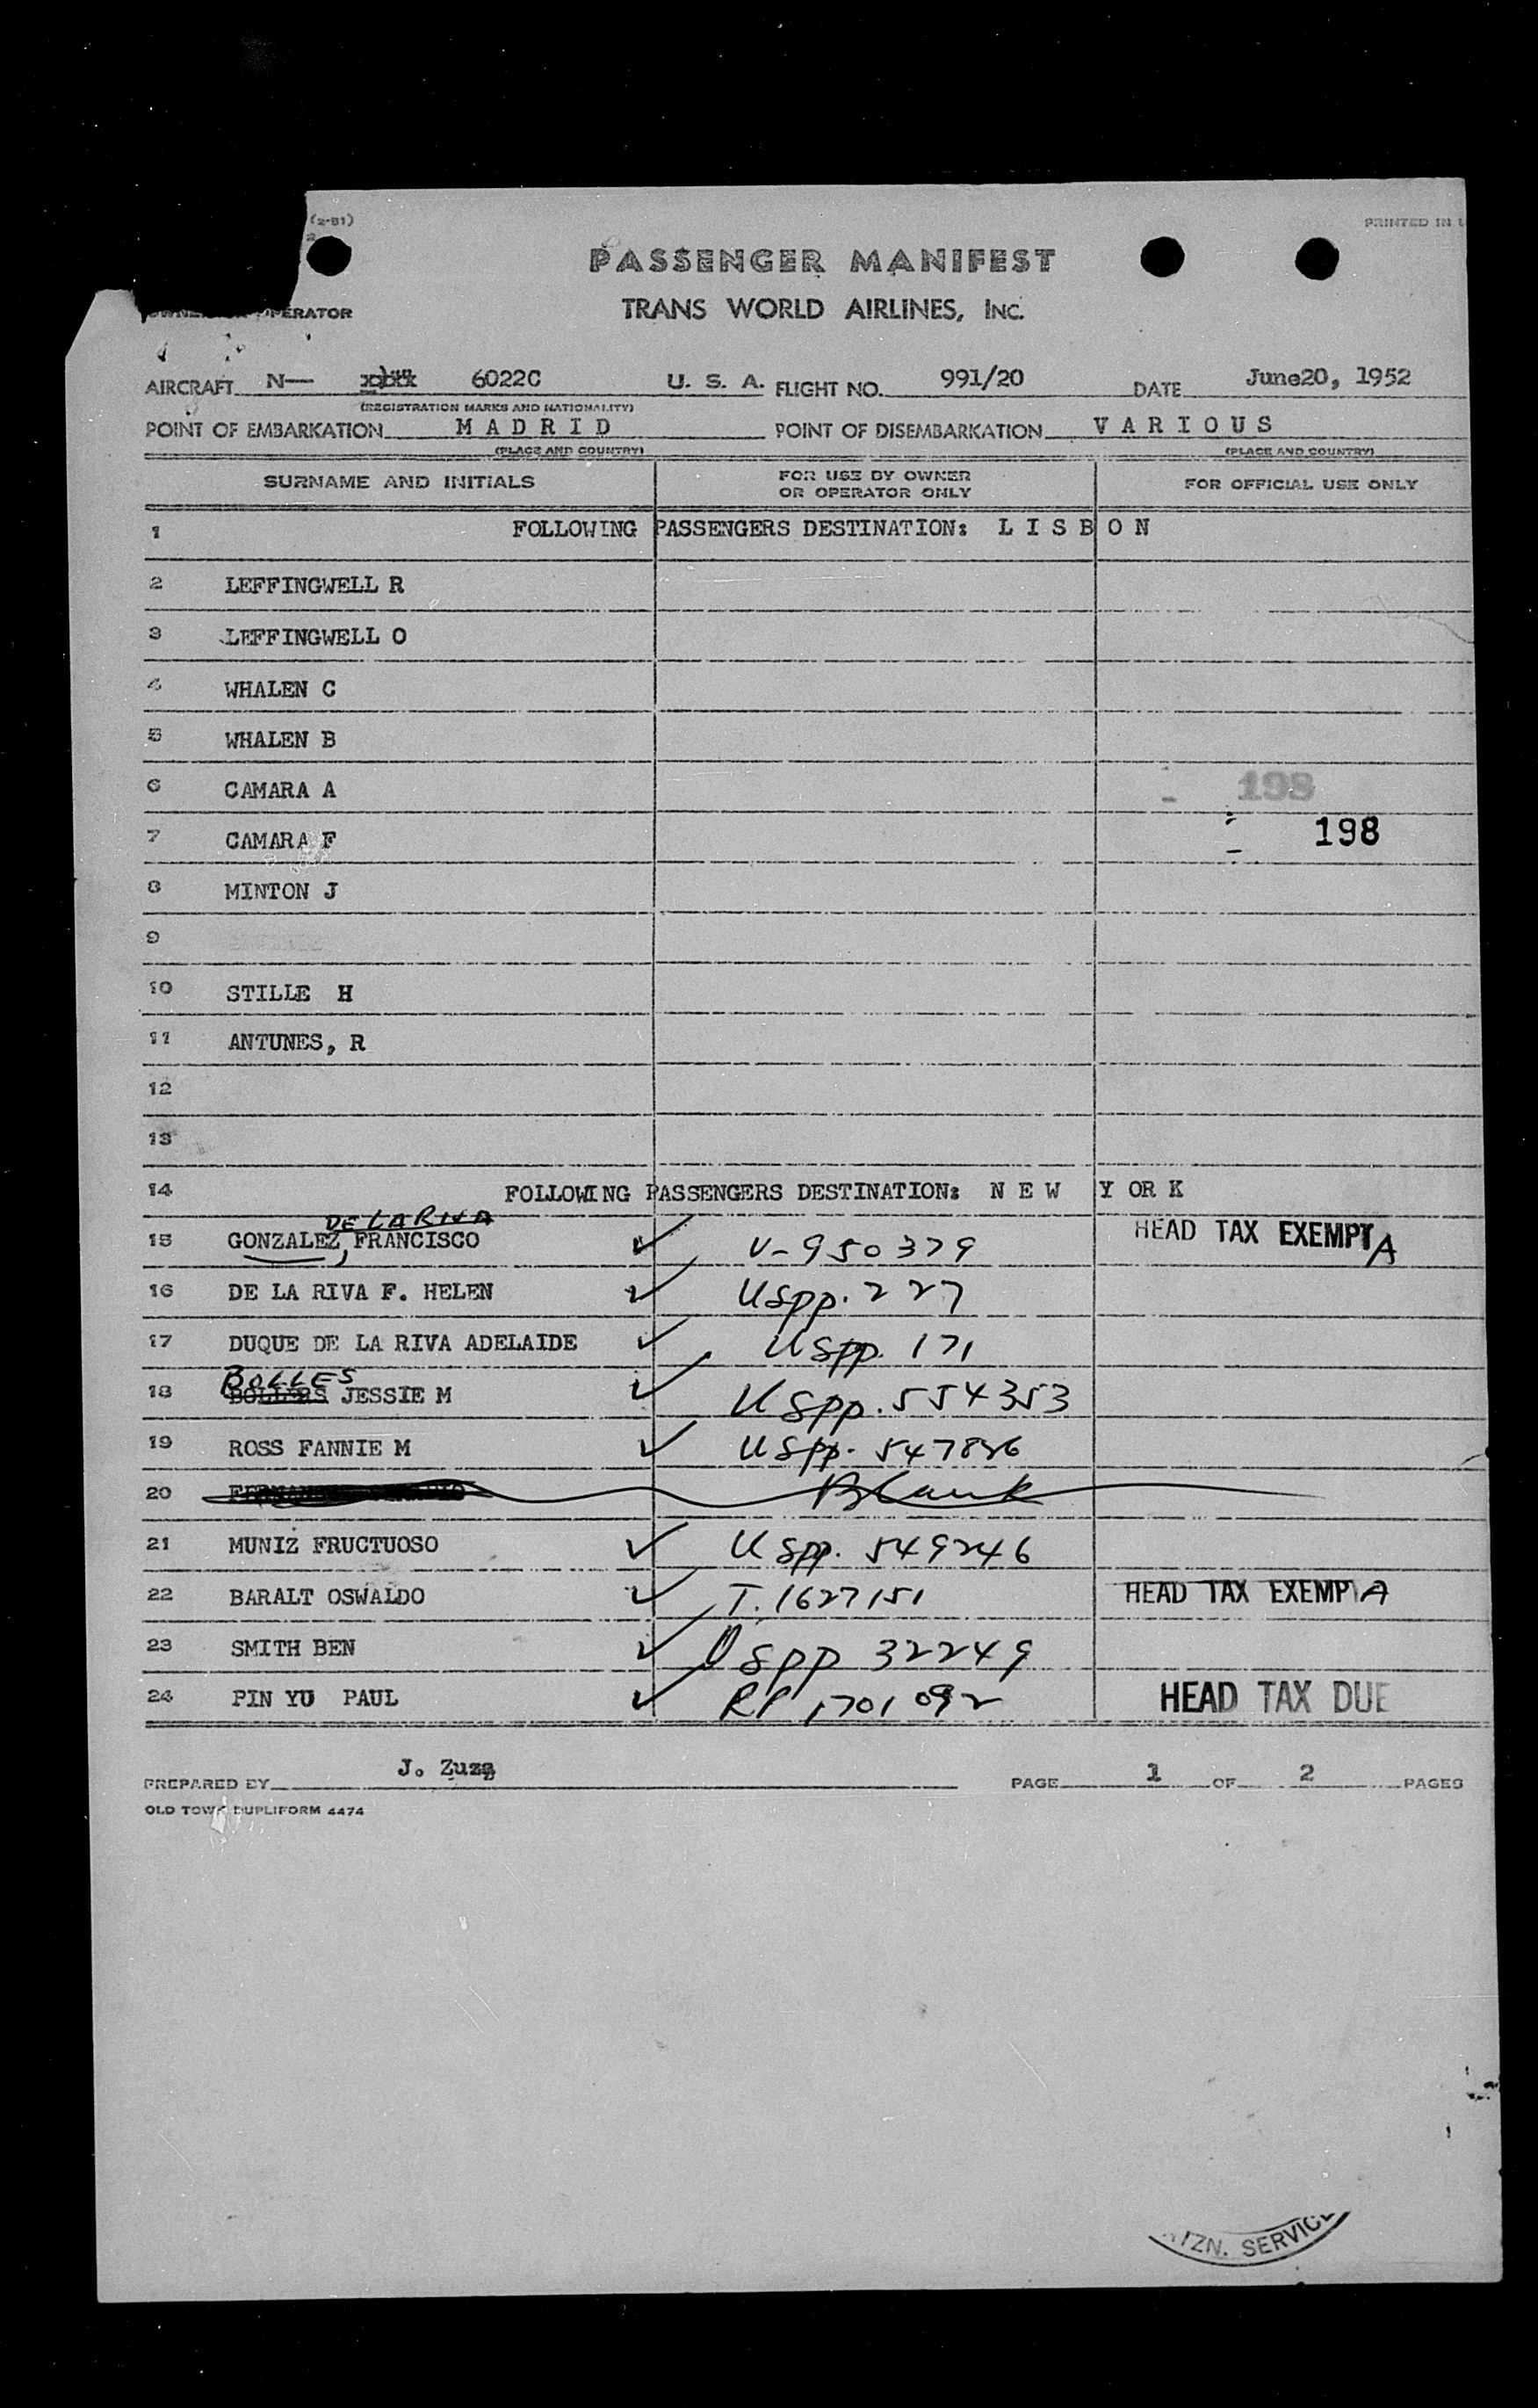 (2-51)
PRINTED IN U
PASSENGER MANIFEST
OPERATOR
TRANS WORLD AIRLINES, INC.
AIRCRAFT N— 6022C U. S. A. FLIGHT NO. 991/20 DATE June20, 1952
(REGISTRATION MARKS AND NATIONALITY)
POINT OF EMBARKATION M A D R I D POINT OF DISEMBARKATION V A R I O U S
(PLACE AND COUNTRY) (PLACE AND COUNTRY)
SURNAME AND INITIALS FOR USE BY OWNER OR OPERATOR ONLY FOR OFFICIAL USE ONLY
1 FOLLOWING PASSENGERS DESTINATION: L I S B O N
2 LEFFINGWELL R
3 LEFFINGWELL O
4 WHALEN C
5 WHALEN B
6 CAMARA A 198
7 CAMARA F 198
8 MINTON J
9
10 STILLE H
11 ANTUNES, R
12
13
14 FOLLOWING PASSENGERS DESTINATION: N E W Y OR K
DE LA RIVA
15 GONZALEZ, FRANCISCO V-950379 HEAD TAX EXEMPT A
16 DE LA RIVA F. HELEN USpp. 227
17 DUQUE DE LA RIVA ADELAIDE USpp. 171
BOLLES
18 BOLLERS JESSIE M USpp. 554353
19 ROSS FANNIE M USpp. 547836
20 Blank
21 MUNIZ FRUCTUOSO USpp. 549246
22 BARALT OSWALDO T. 1627151 HEAD TAX EXEMPT A
23 SMITH BEN USpp 32249
24 PIN YU PAUL RP 1701092 HEAD TAX DUE
PREPARED BY J. Zuzg PAGE 1 OF 2 PAGES
OLD TOWN DUPLIFORM 4474
TZN. SERVICE